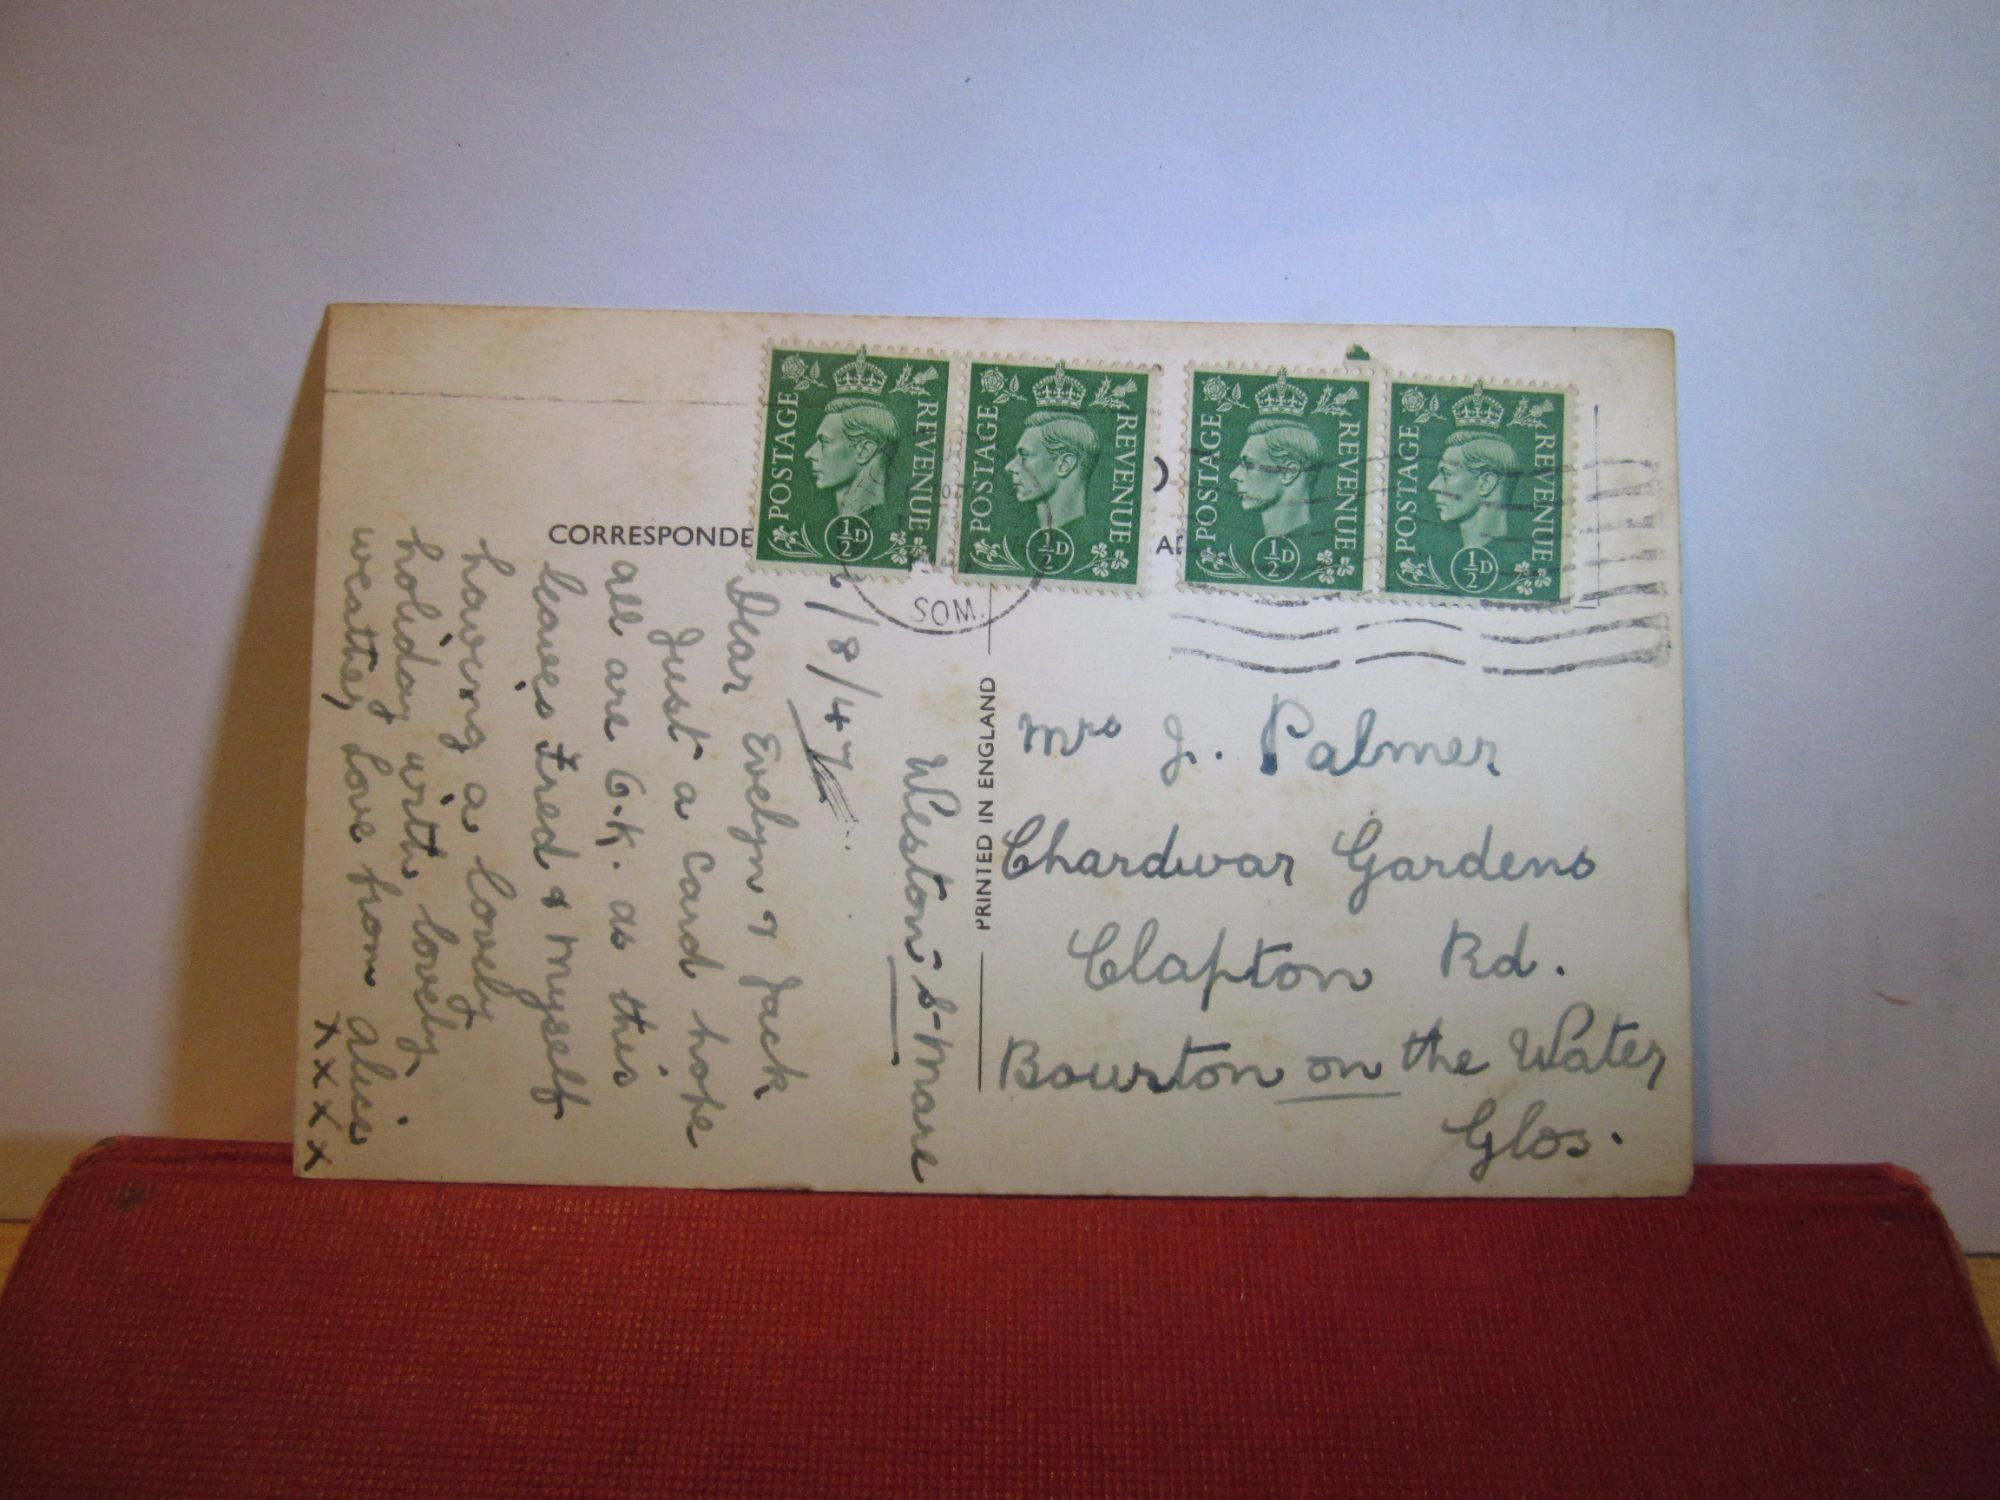 POSTAGE REVENUE ½D
POSTAGE REVENUE ½D
POSTAGE REVENUE ½D
POSTAGE REVENUE ½D
SOM.
CORRESPONDE
PRINTED IN ENGLAND
Weston-S-Mare
/8/47
Dear Evelyn & Jack
Just a card hope
all are O.K. as this
leaves Fred & Myself
having a lovely
holiday with lovely
weather, Love from Alice
x x x x
Mrs J. Palmer
Chardwar Gardens
Clapton Rd.
Bourton on the Water
Glos.